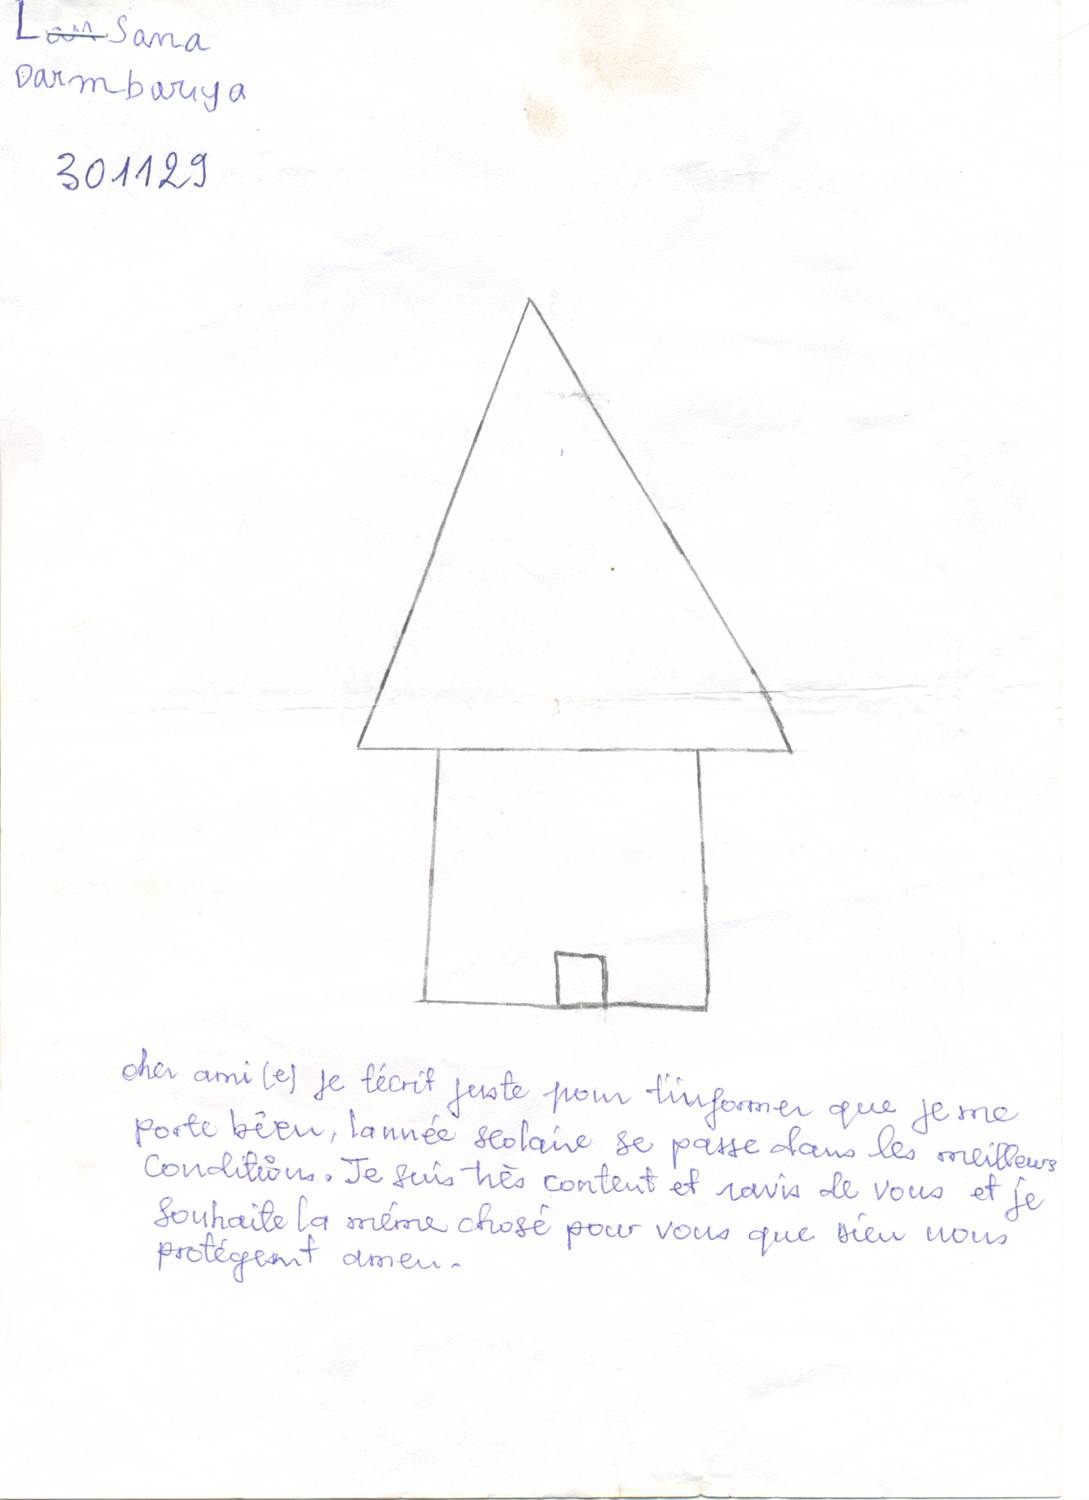 L Sana
Darmbariya
301129
cher ami(e) je t'écrit juste pour t'informer que je me
porte bien, lannée scolaire se passe dans les meilleurs
conditions. Je suis très content et ravis de vous et je
souhaite la même chosé pour vous que Dieu nous
protégent amen.